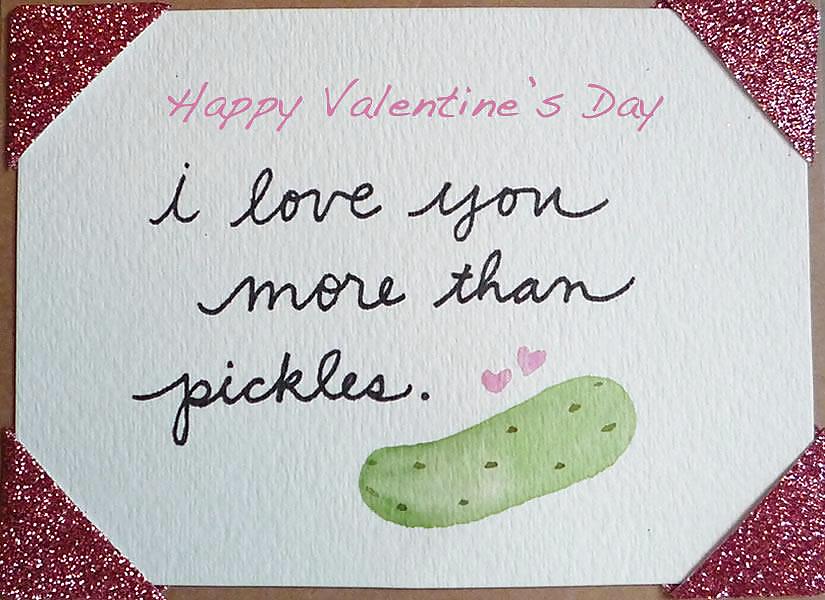 Happy Valentine's Day
i love you
more than
pickles.